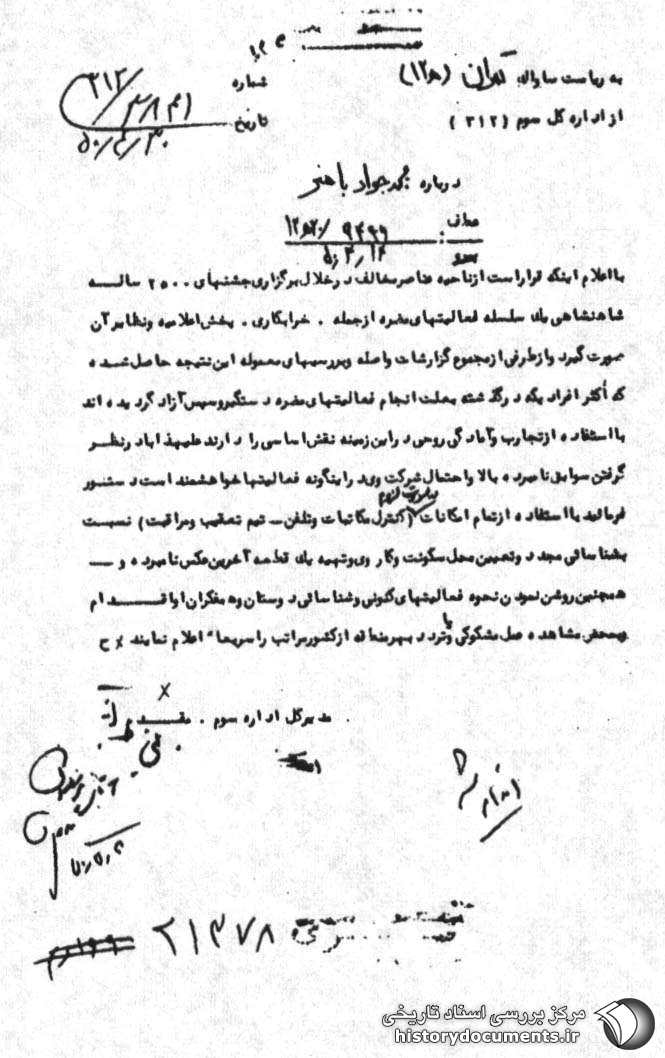 به ریاست ساواک تهران (۱۲ه)
از اداره کل سوم (۳۱۲)
شماره ۳۱۲/
تاریخ ۵۰/۴/۳۰
درباره محمد جواد باهنر
عطف :
۵۰/۴/۱۲
با اعلام اینکه قرار است از ناحیه عناصر مخالف در خلال برگزاری جشنهای ۲۵۰۰ ساله
شاهنشاهی یک سلسله فعالیتهای مضره از جمله . خرابکاری . پخش اعلامیه و نظایر آن
صورت گیرد و از طرفی از مجموع گزارشات واصله و بررسیهای معموله این نتیجه حاصل شده
که اکثر افرادیکه در گذشته بعلت انجام فعالیتهای مضره دستگیر و سپس آزاد گردیده اند
با استفاده از تجارب و آمادگی روحی در این زمینه نقش اساسی را دارند علیهذا با در نظر
گرفتن سوابق نامبرده بالا و احتمال شرکت وی در اینگونه فعالیتها خواهشمند است دستور
فرمائید با استفاده از تمام امکانات (کنترل مکاتبات و تلفن ـ تیم تعقیب و مراقبت) نسبت
بشناسائی مجدد و تعیین محل سکونت و کار وی و تهیه یک قطعه آخرین عکس نامبرده و ـ
همچنین روشن نمودن نحوه فعالیتهای کنونی و شناسائی دوستان و همفکران او اقدام
و بمحض مشاهده عمل مشکوکی و یا تردد بهر منطقه از کشور مراتب را سریعاً اعلام نمایند ح
مدیر کل اداره سوم . مقدم
۲۱۳۷۸
مرکز بررسی اسناد تاریخی
historydocuments.ir